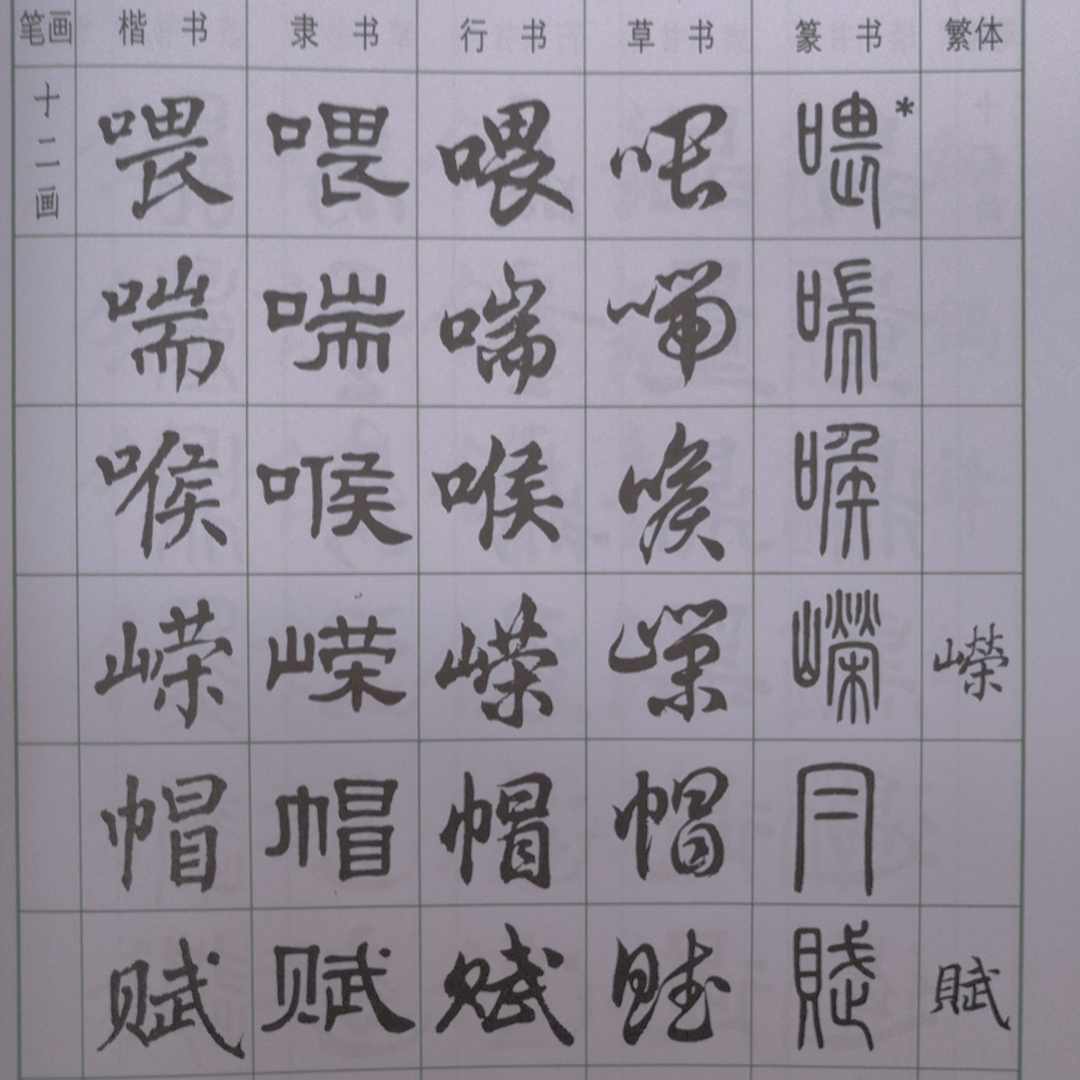 笔画 楷书 隶书 行书 草书 篆书 繁体
十二画 喂 喂 喂 喂 喂*
喘 喘 喘 喘 喘
喉 喉 喉 喉 喉
嵘 嵘 嵘 嵘 嶸 嶸
帽 帽 帽 帽 冃
赋 赋 赋 赋 賦 賦